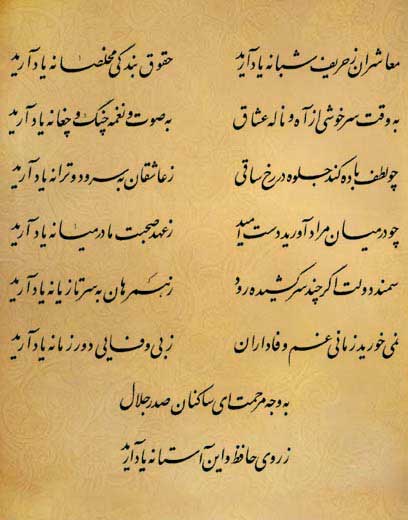 معاشران ز حریف شبانه یاد آرید حقوق بندگی مخلصانه یاد آرید
به وقت سرخوشی از آه و ناله عشاق به صوت و نغمه چنگ و چغانه یاد آرید
چو لطف باده کند جلوه در رخ ساقی ز عاشقان به سرود و ترانه یاد آرید
چو در میان مراد آورید دست امید ز عهد صحبت ما در میانه یاد آرید
سمند دولت اگر چند سرکشیده رود ز همرهان به سر تازیانه یاد آرید
نمی خورید زمانی غم وفاداران ز بی وفایی دور زمانه یاد آرید
به وجه مرحمت ای ساکنان صدر جلال
ز روی حافظ و این آستانه یاد آرید